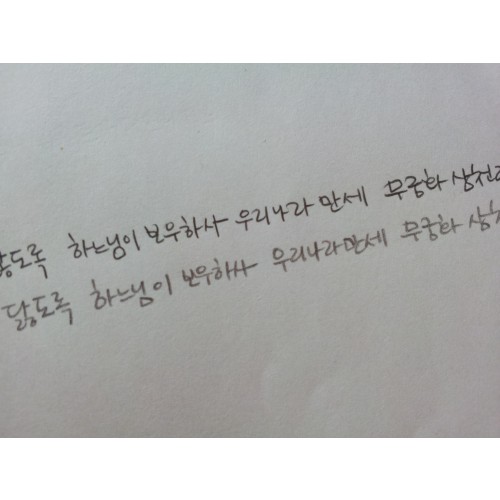 닳도록 하느님이 보우하사 우리나라 만세 무궁화 삼천
닳도록 하느님이 보우하사 우리나라만세 무궁화